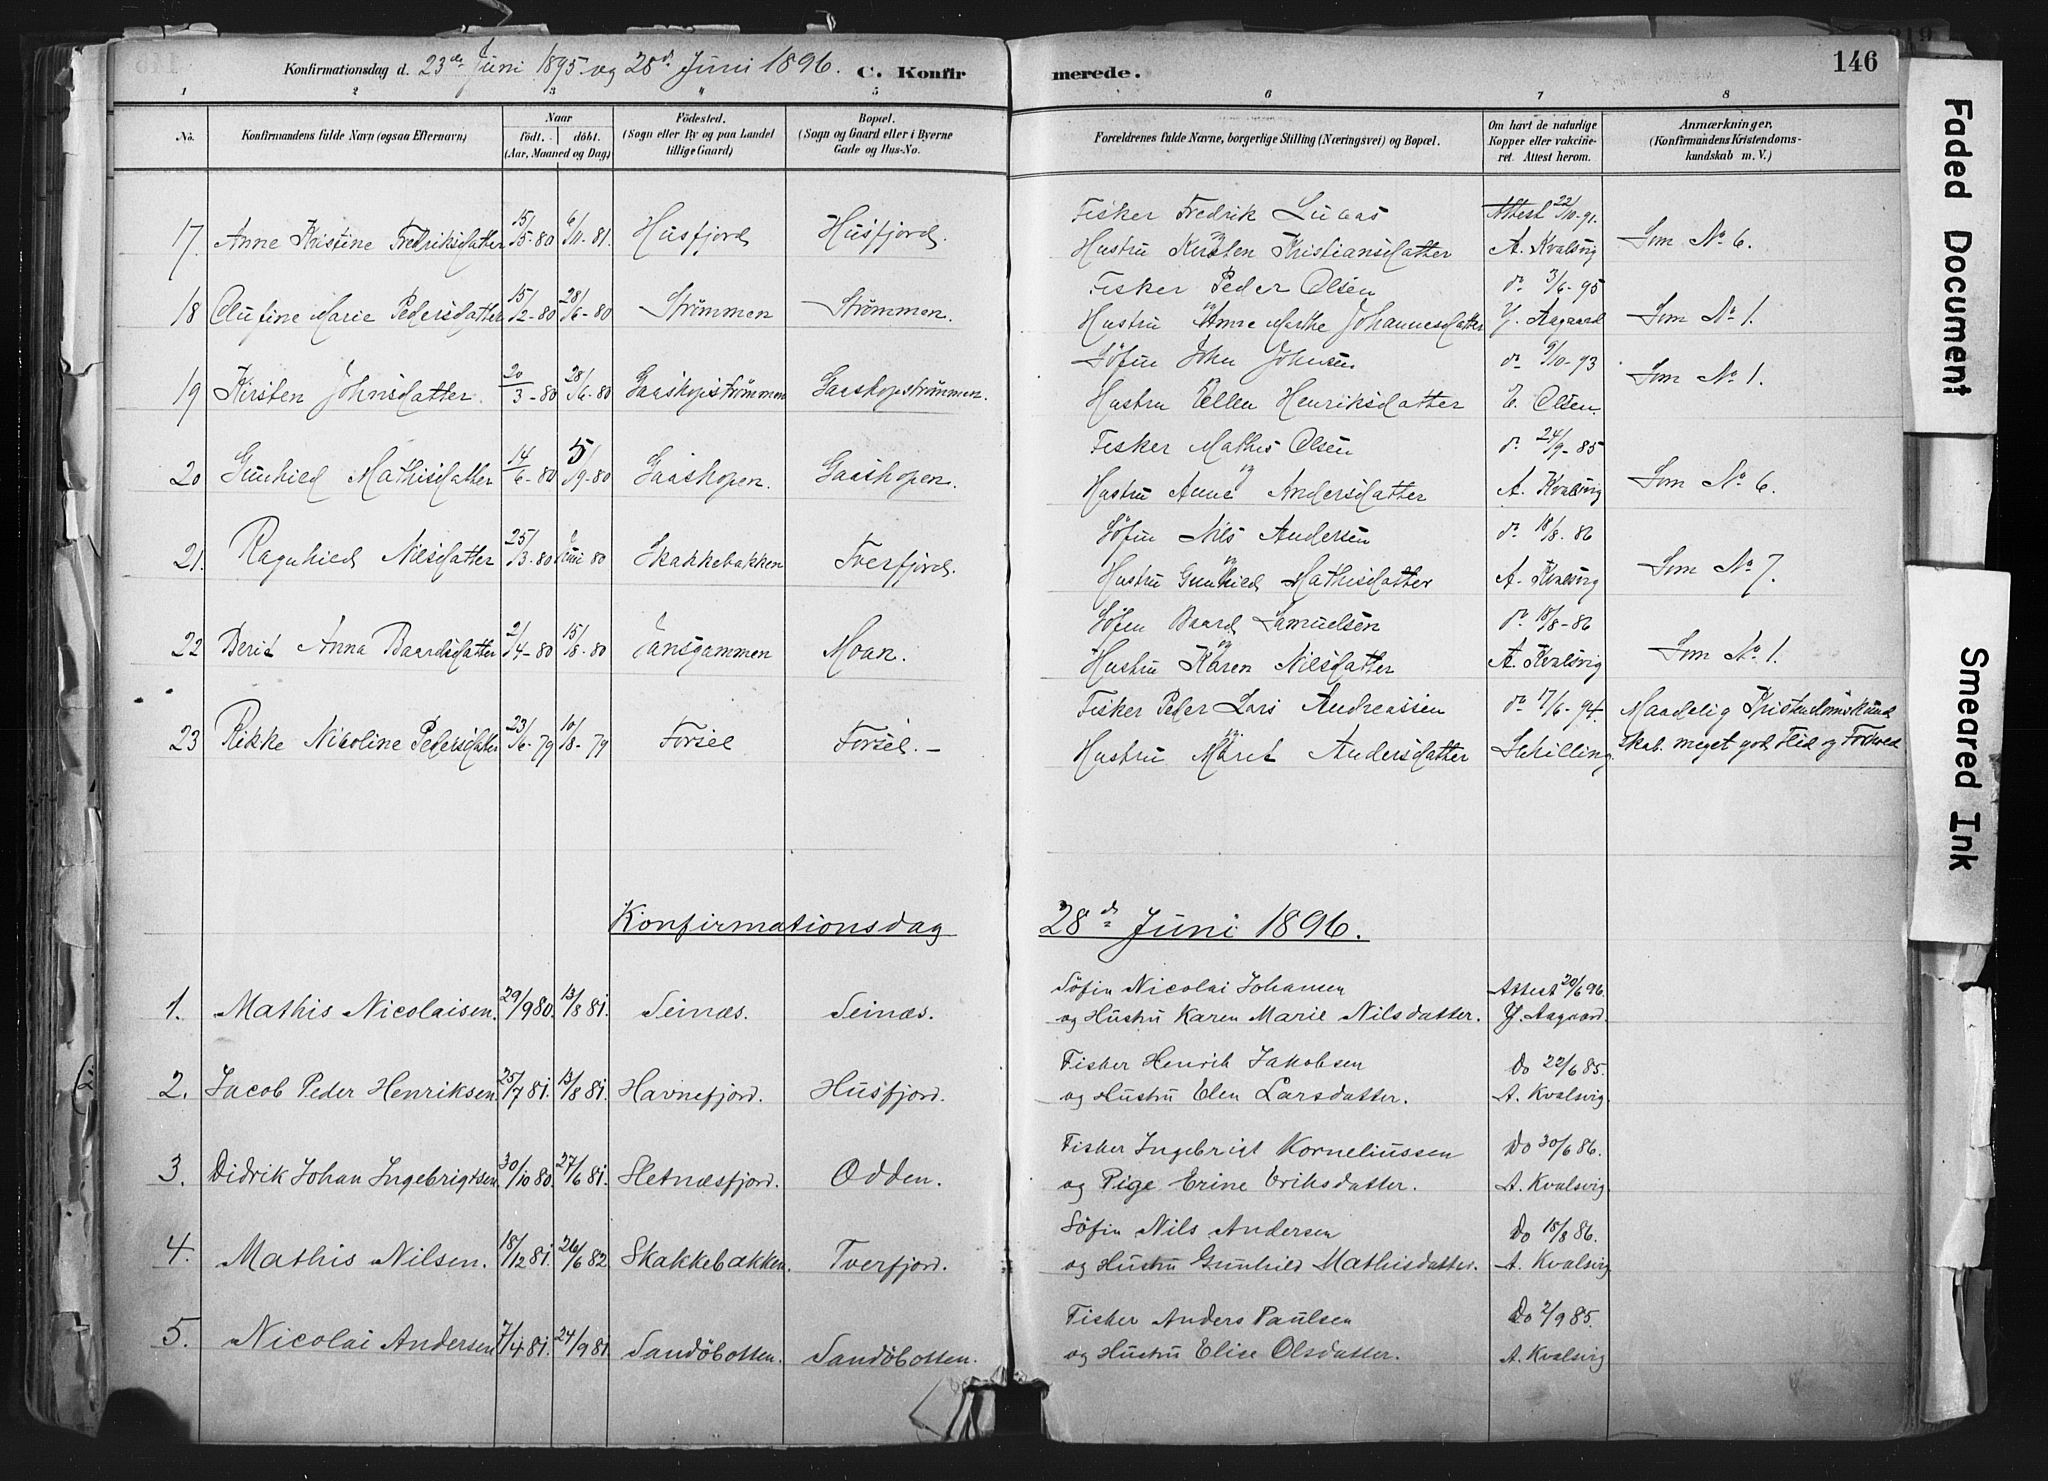 Konfirmationsdag d. 23de Juni 1895 og 28d Juni 1896. C. Konfirmerede. 146
1 2 3 4 5 6 7 8
No. Konfirmandens fulde Navn (ogsaa Efternavn) Naar födt. döbt. (Aar, Maaned og Dag) Födested. (Sogn eller By og paa Landet tillige Gaard) Bopæl. (Sogn og Gaard eller i Byerne Gade og Hus-No. Forældrenes fulde Navne, borgerlige Stilling (Næringsvei) og Bopæl. Om havt de naturlige Kopper eller vakcineret. Attest herom. Anmærkninger, (Konfirmandens Kristendomskundskab m. V.)
Fisker Fredrik Lucas Attest 22/10-91.
17. Anne Kristine Fredriksdatter 15/5-80 6/11-81. Husfjord Husfjord. og Hustru Kirsten Kristiansdatter A. Kvalsvig Som No 6.
Fisker Peder Olsen do 3/6-95
18 Olufine Marie Pedersdatter 15/2-80 28/6-80 Strømmen Strømmen. og Hustru Anne Marthe Johannesdatter Y. Aagaard Som No 1.
Söfin John Johnsen do 9/10-93
19 Kirsten Johnsdatter. 20/3-80 28/6-80 Gaashopstrømmen Gaashopstrømmen. Hustru Ellen Henriksdatter E. Olsen. Som No 1.
Fisker Mathis Olsen do 24/9-85
20 Gunhild Mathisdatter 14/6-80 5/9-80 Gaashopen. Gaashopen. og Hustru Anne Andersdatter A. Kvalsvig Som No 6.
Söfin Nils Andersen do 18/8-86
21. Ragnhild Nilsdatter 25/3-80 Juni 80 Skakkebakken Tverfjord. og Hustru Gunhild Mathisdatter A. Kvalsvig Som No 7.
Söfin Baard Samuelsen do 18/8-86
22 Berit Anna Baardsdatter 2/4-80 15/8-80 Jansgammen Moan. og Hustru Karen Nilsdatter A. Kvalsvig Som No 1.
Fisker Peder Lars Andreassen do 17/6-94 Maadelig Kristendomskund
23 Rikke Nicoline Pedersdatter 23/6-79 10/8-79 Forsöl Forsöl. – og Hustru Marit Andersdatter Schilling. skab. meget god Flid og Forhold
Konfirmationsdag 28d Juni 1896.
Söfin Nicolai Johansen Attest 20/6 96.
1. Mathis Nicolaisen. 29/9 80. 13/8 81. Seinæs. Seinæs. og Hustru Karen Marie Nilsdatter. Y. Aagaard.
Fisker Henrik Jakobsen Do 22/6 85.
2. Jacob Peder Henriksen. 25/7 81. 13/8 81. Havnefjord. Husfjord. og Hustru Elen Larsdatter. A. Kvalsvig.
Fisker Ingebrigt Korneliussen Do 30/6 86.
3. Didrik Johan Ingebrigtsen. 30/10 80. 27/6 81. Sletnæsfjord. Odden. og Pige Erine Eriksdatter. A. Kvalsvig.
Söfin Nils Andersen Do 18/8 86.
4. Mathis Nilsen. 18/12 81. 26/6 82. Skakkebakken. Tverfjord. og Hustru Gunhild Mathisdatter. A. Kvalsvig
Fisker Anders Paulsen Do 2/9 85.
5. Nicolai Andersen 7/4 81. 24/9 81. Sandöbotten. Sandöbotten. og Hustru Elise Olsdatter. A. Kvalsvig
Faded Document
Smeared Ink